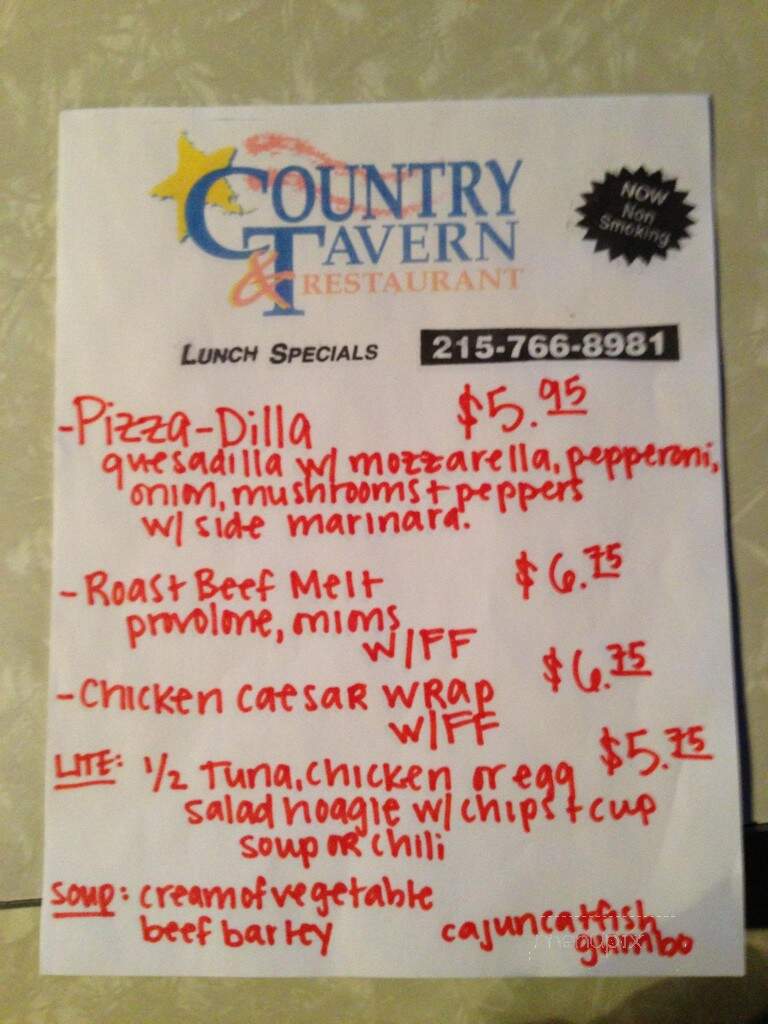 COUNTRY
TAVERN
& RESTAURANT
NOW
Non
Smoking
LUNCH SPECIALS
215-766-8981
-Pizza-Dilla $5.95
quesadilla w/ mozzarella, pepperoni,
onion, mushrooms + peppers
w/ side marinara.
-Roast Beef Melt $6.75
provolone, onions
w/FF
-Chicken Caesar Wrap $6.75
w/FF
LITE: 1/2 Tuna, chicken or egg $5.75
salad hoagie w/ chips + cup
soup or chili
soup: cream of vegetable
beef barley cajun catfish
gumbo
menupix